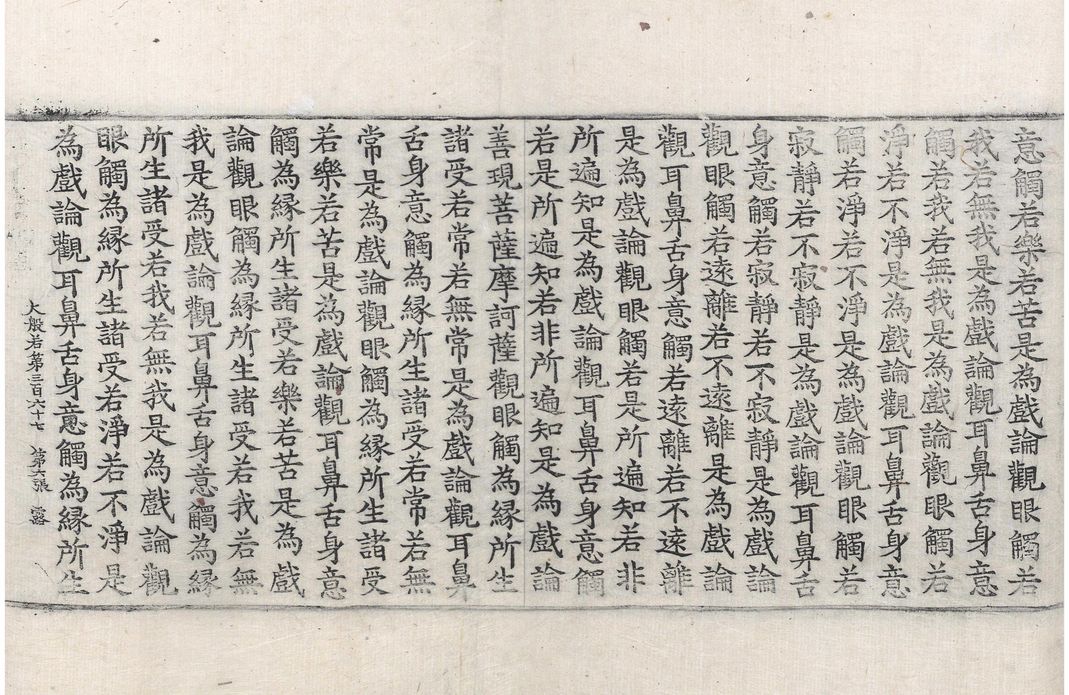 意觸若樂若苦是為戲論觀眼觸若
我若無我是為戲論觀耳鼻舌身意
觸若我若無我是為戲論觀眼觸若
淨若不淨是為戲論觀耳鼻舌身意
觸若淨若不淨是為戲論觀眼觸若
寂靜若不寂靜是為戲論觀耳鼻舌
身意觸若寂靜若不寂靜是為戲論
觀眼觸若遠離若不遠離是為戲論
觀耳鼻舌身意觸若遠離若不遠離
是為戲論觀眼觸若是所遍知若非
所遍知是為戲論觀耳鼻舌身意觸
若是所遍知若非所遍知是為戲論
善現菩薩摩訶薩觀眼觸為緣所生
諸受若常若無常是為戲論觀耳鼻
舌身意觸為緣所生諸受若常若無
常是為戲論觀眼觸為緣所生諸受
若樂若苦是為戲論觀耳鼻舌身意
觸為緣所生諸受若樂若苦是為戲
論觀眼觸為緣所生諸受若我若無
我是為戲論觀耳鼻舌身意觸為緣
所生諸受若我若無我是為戲論觀
眼觸為緣所生諸受若淨若不淨是
為戲論觀耳鼻舌身意觸為緣所生
大般若第三百六十七 第六張 露